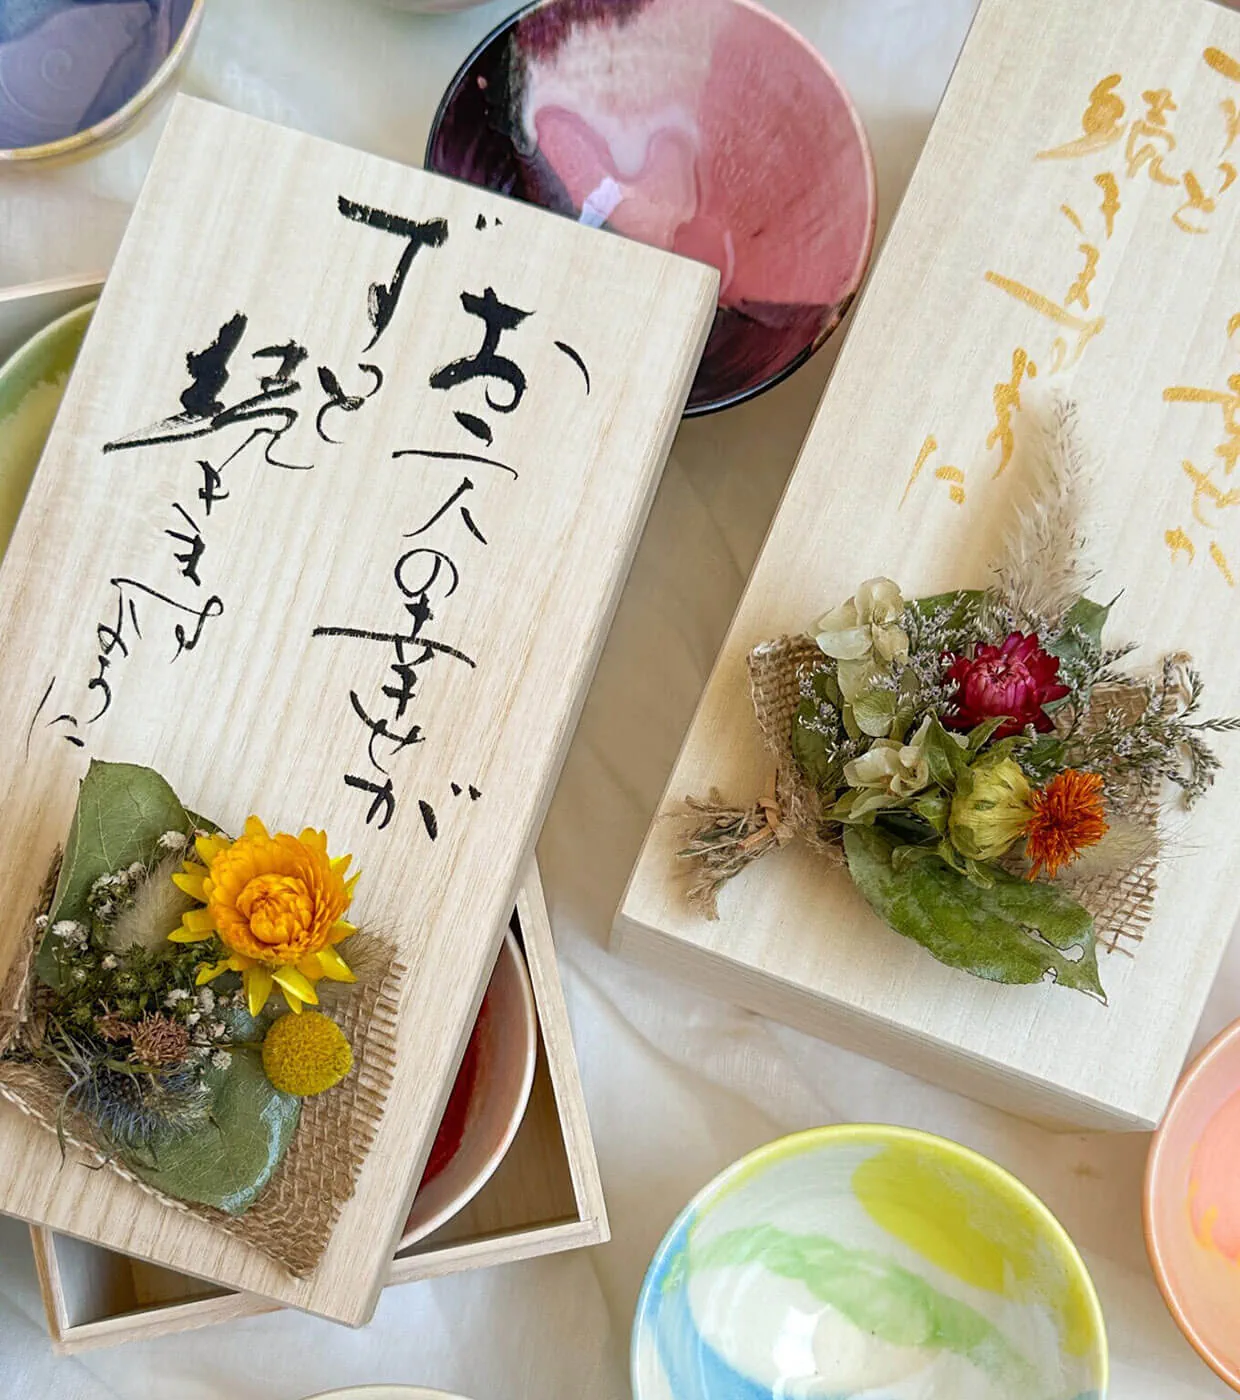 お二人の幸せが
ずっと
続きますように
せが
っと
続きますように